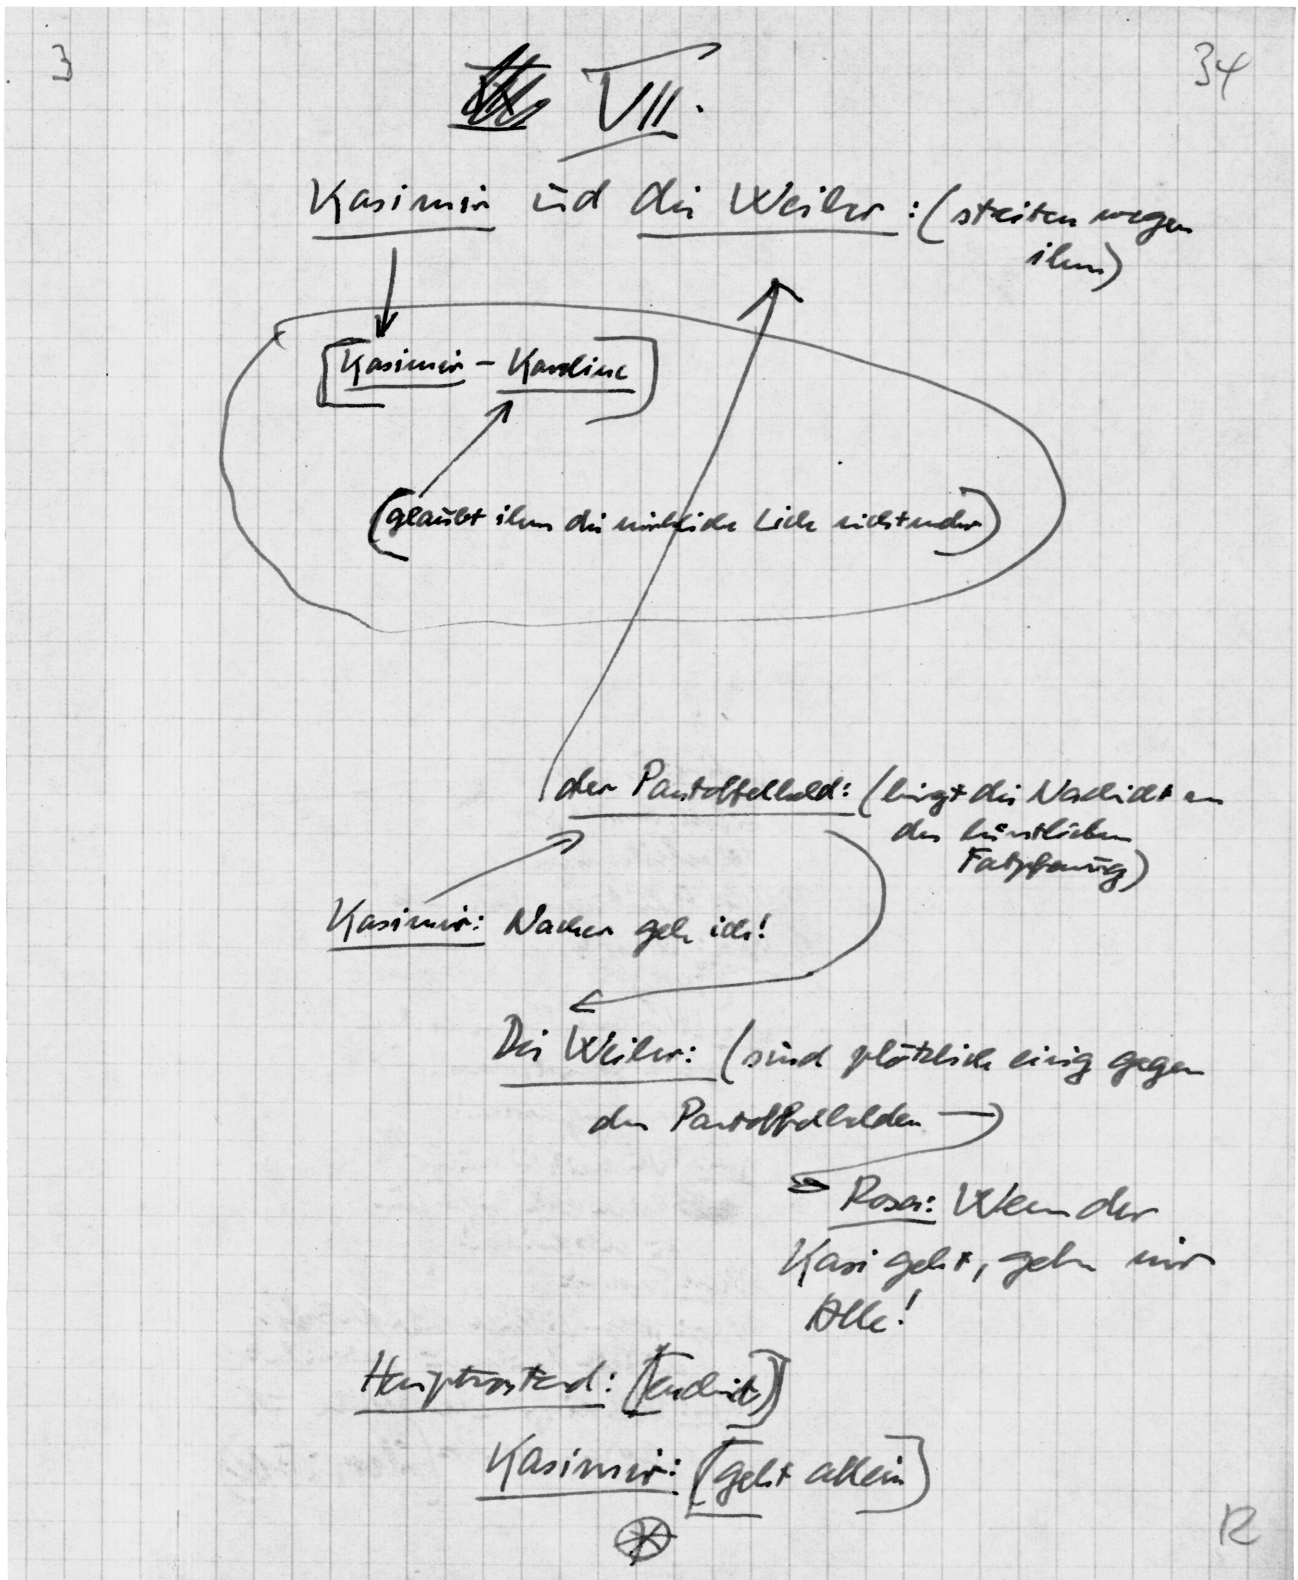 3
34
VII.
Kasimir und die Weiber: (streiten wegen
ihm)
[Kasimir – Karoline]
(glaubt ihm die wirkliche Liebe nicht mehr)
der Pantoffelheld: (bringt die Nachricht von
der künstlichen
Kasimir: Nacher geh ich!
Die Weiber: (sind plötzlich einig gegen
den Pantoffelhelden
Rosa: Wenn der
Kasi geht, gehn wir
Alle!
Kasimir: [geht allein]
12